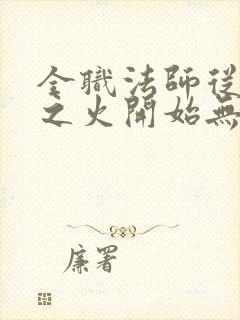 全職法師從
之火開始無
廉署